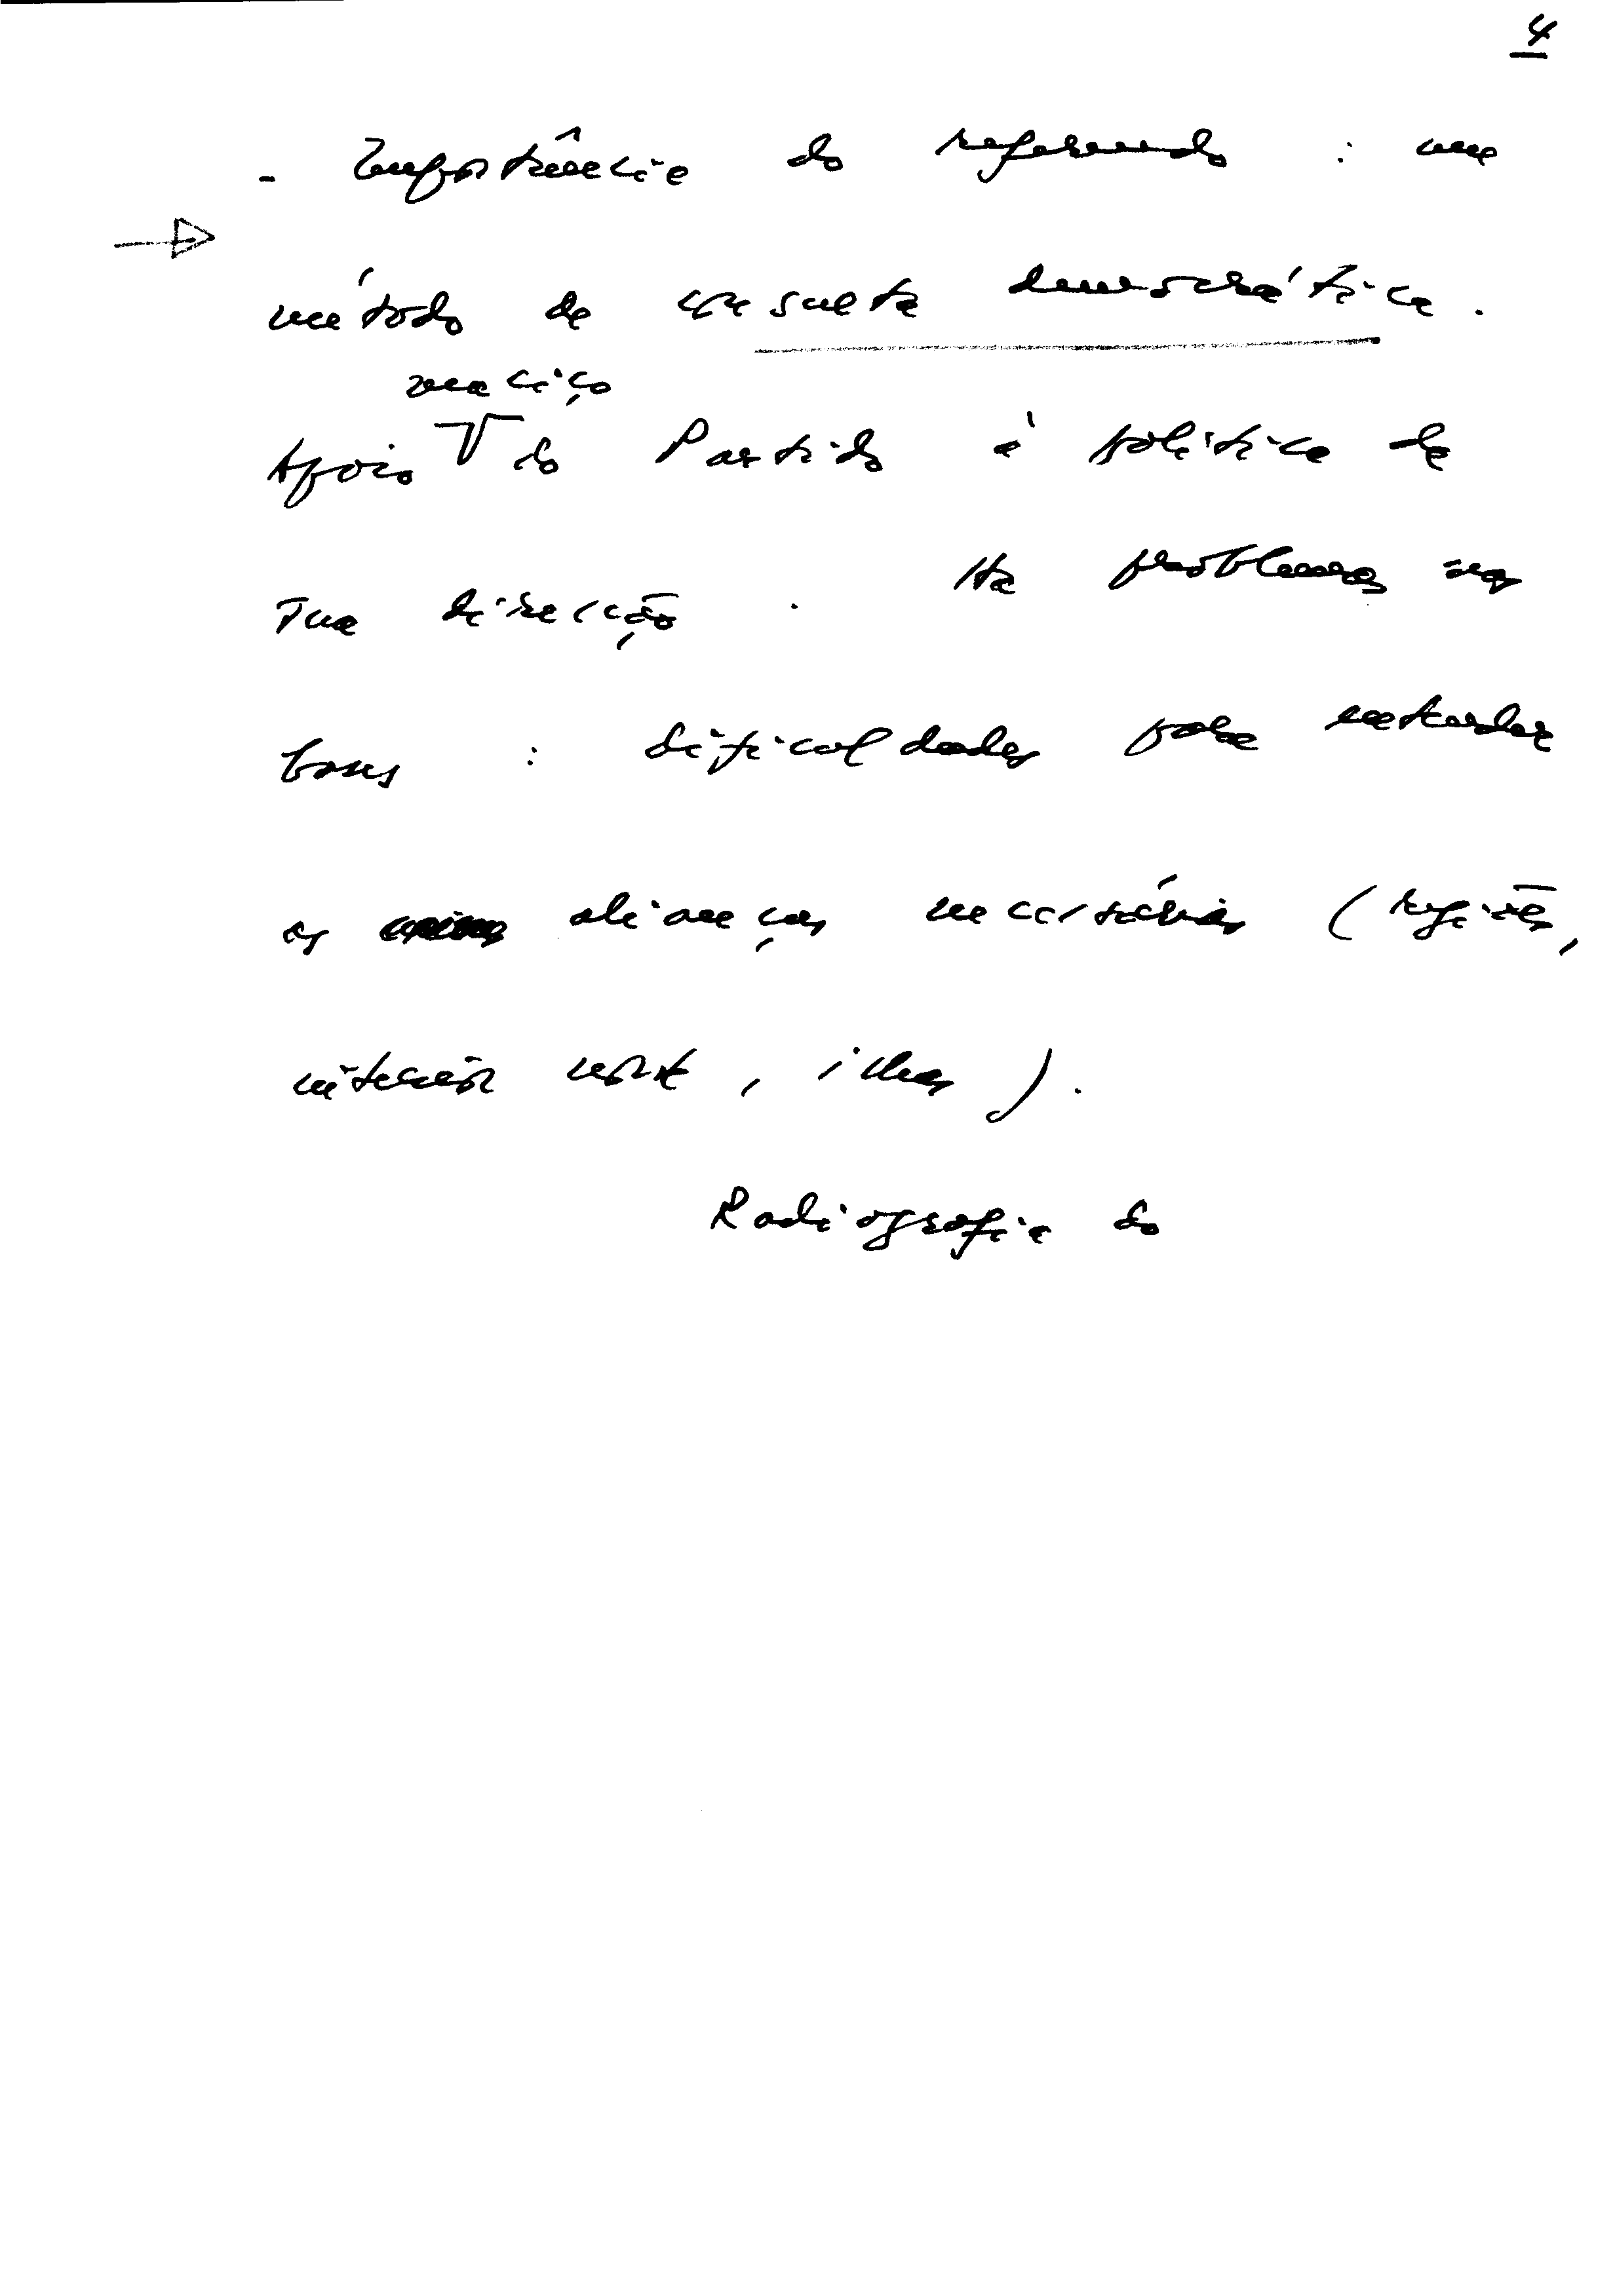 4
- Importância do referendo : um
método de consulta democrática.
maciço
Apoio do Partido à política da
sua direcção . Há problemas nas
bases : dificuldades para entender
as alianças necessárias (regiões,
interior norte, ilhas).
Radiografia do